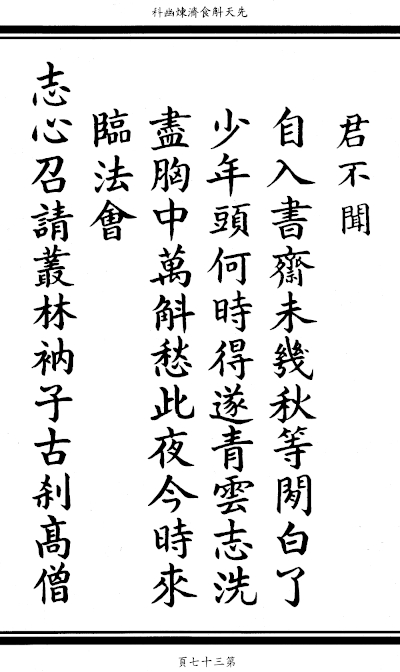 先天斛食濟煉幽科
君不聞
自入書齋未幾秋等閒白了
少年頭何時得遂青雲志洗
盡胸中萬斛愁此夜今時來
臨法會
志心召請叢林衲子古刹高僧
第三十七頁